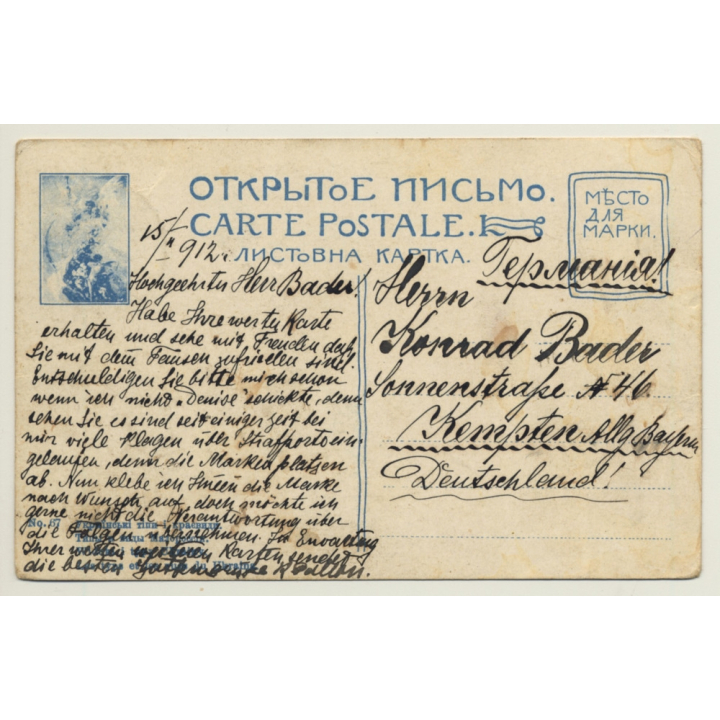 ОТКРЫТОЕ ПИСЬМО.
CARTE POSTALE.
ЛИСТОВНА КАРТКА.
МѢСТО
ДЛЯ
МАРКИ.
15/II 912.
Hochgeehrter Herr Bader!
Habe Ihre werte Karte
erhalten und sehe mit Freuden daß
Sie mit dem Tausch zufrieden sind.
Entschuldigen Sie bitte mich schon
wenn ich nicht "Denise" schickte, denn
sehen Sie es sind seit einiger Zeit bei
mir viele Klagen über Strafporto ein-
gelaufen, denn die Marken platzen
ab. Nun klebe ich Ihnen die Marke
nach Wunsch auf doch möchte ich
gerne nicht die Verantwortung über
die Folgen übernehmen. In Erwartung
Ihrer werten Karten sendet
die besten
No. 57 Українські типи і краєвиди.
Германія!
Herrn
Konrad Bader
Sonnenstraße № 46.
Kempten Allg Bayern
Deutschland!